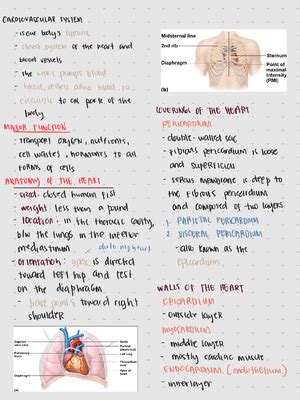 CARDIOVASCULAR SYSTEM
- is our body's
- closed system of the heart and
blood vessels
- The heart pumps blood
- blood vessels allow blood to
circulate to all parts of the
body
MAJOR FUNCTION
- transport oxygen, nutrients,
cell wastes, hormones to all
forms of cells
ANATOMY OF THE HEART
- size: closed human fist
- weight: less than a pound
- location: in the thoracic cavity,
b/w the lungs in the inferior
mediastinum
- orientation: apex is directed
toward left hip and rest
on the diaphragm
- base points toward right
shoulder
Diaphragm
(a)
Midsternal line
2nd rib
Sternum
Diaphragm
Point of
maximal
intensity
(PMI)
(b)
COVERINGS OF THE HEART
PERICARDIUM
- double-walled sac
- fibrous pericardium is loose
and superficial
- serous membrane is deep to
the fibrous pericardium
and composed of two layers
1. PARIETAL PERICARDIUM
2. VISCERAL PERICARDIUM
- also known as the
epicardium
WALLS OF THE HEART
EPICARDIUM
- outside layer
MYOCARDIUM
- middle layer
- mostly cardiac muscle
ENDOCARDIUM (endothelium)
- inner layer